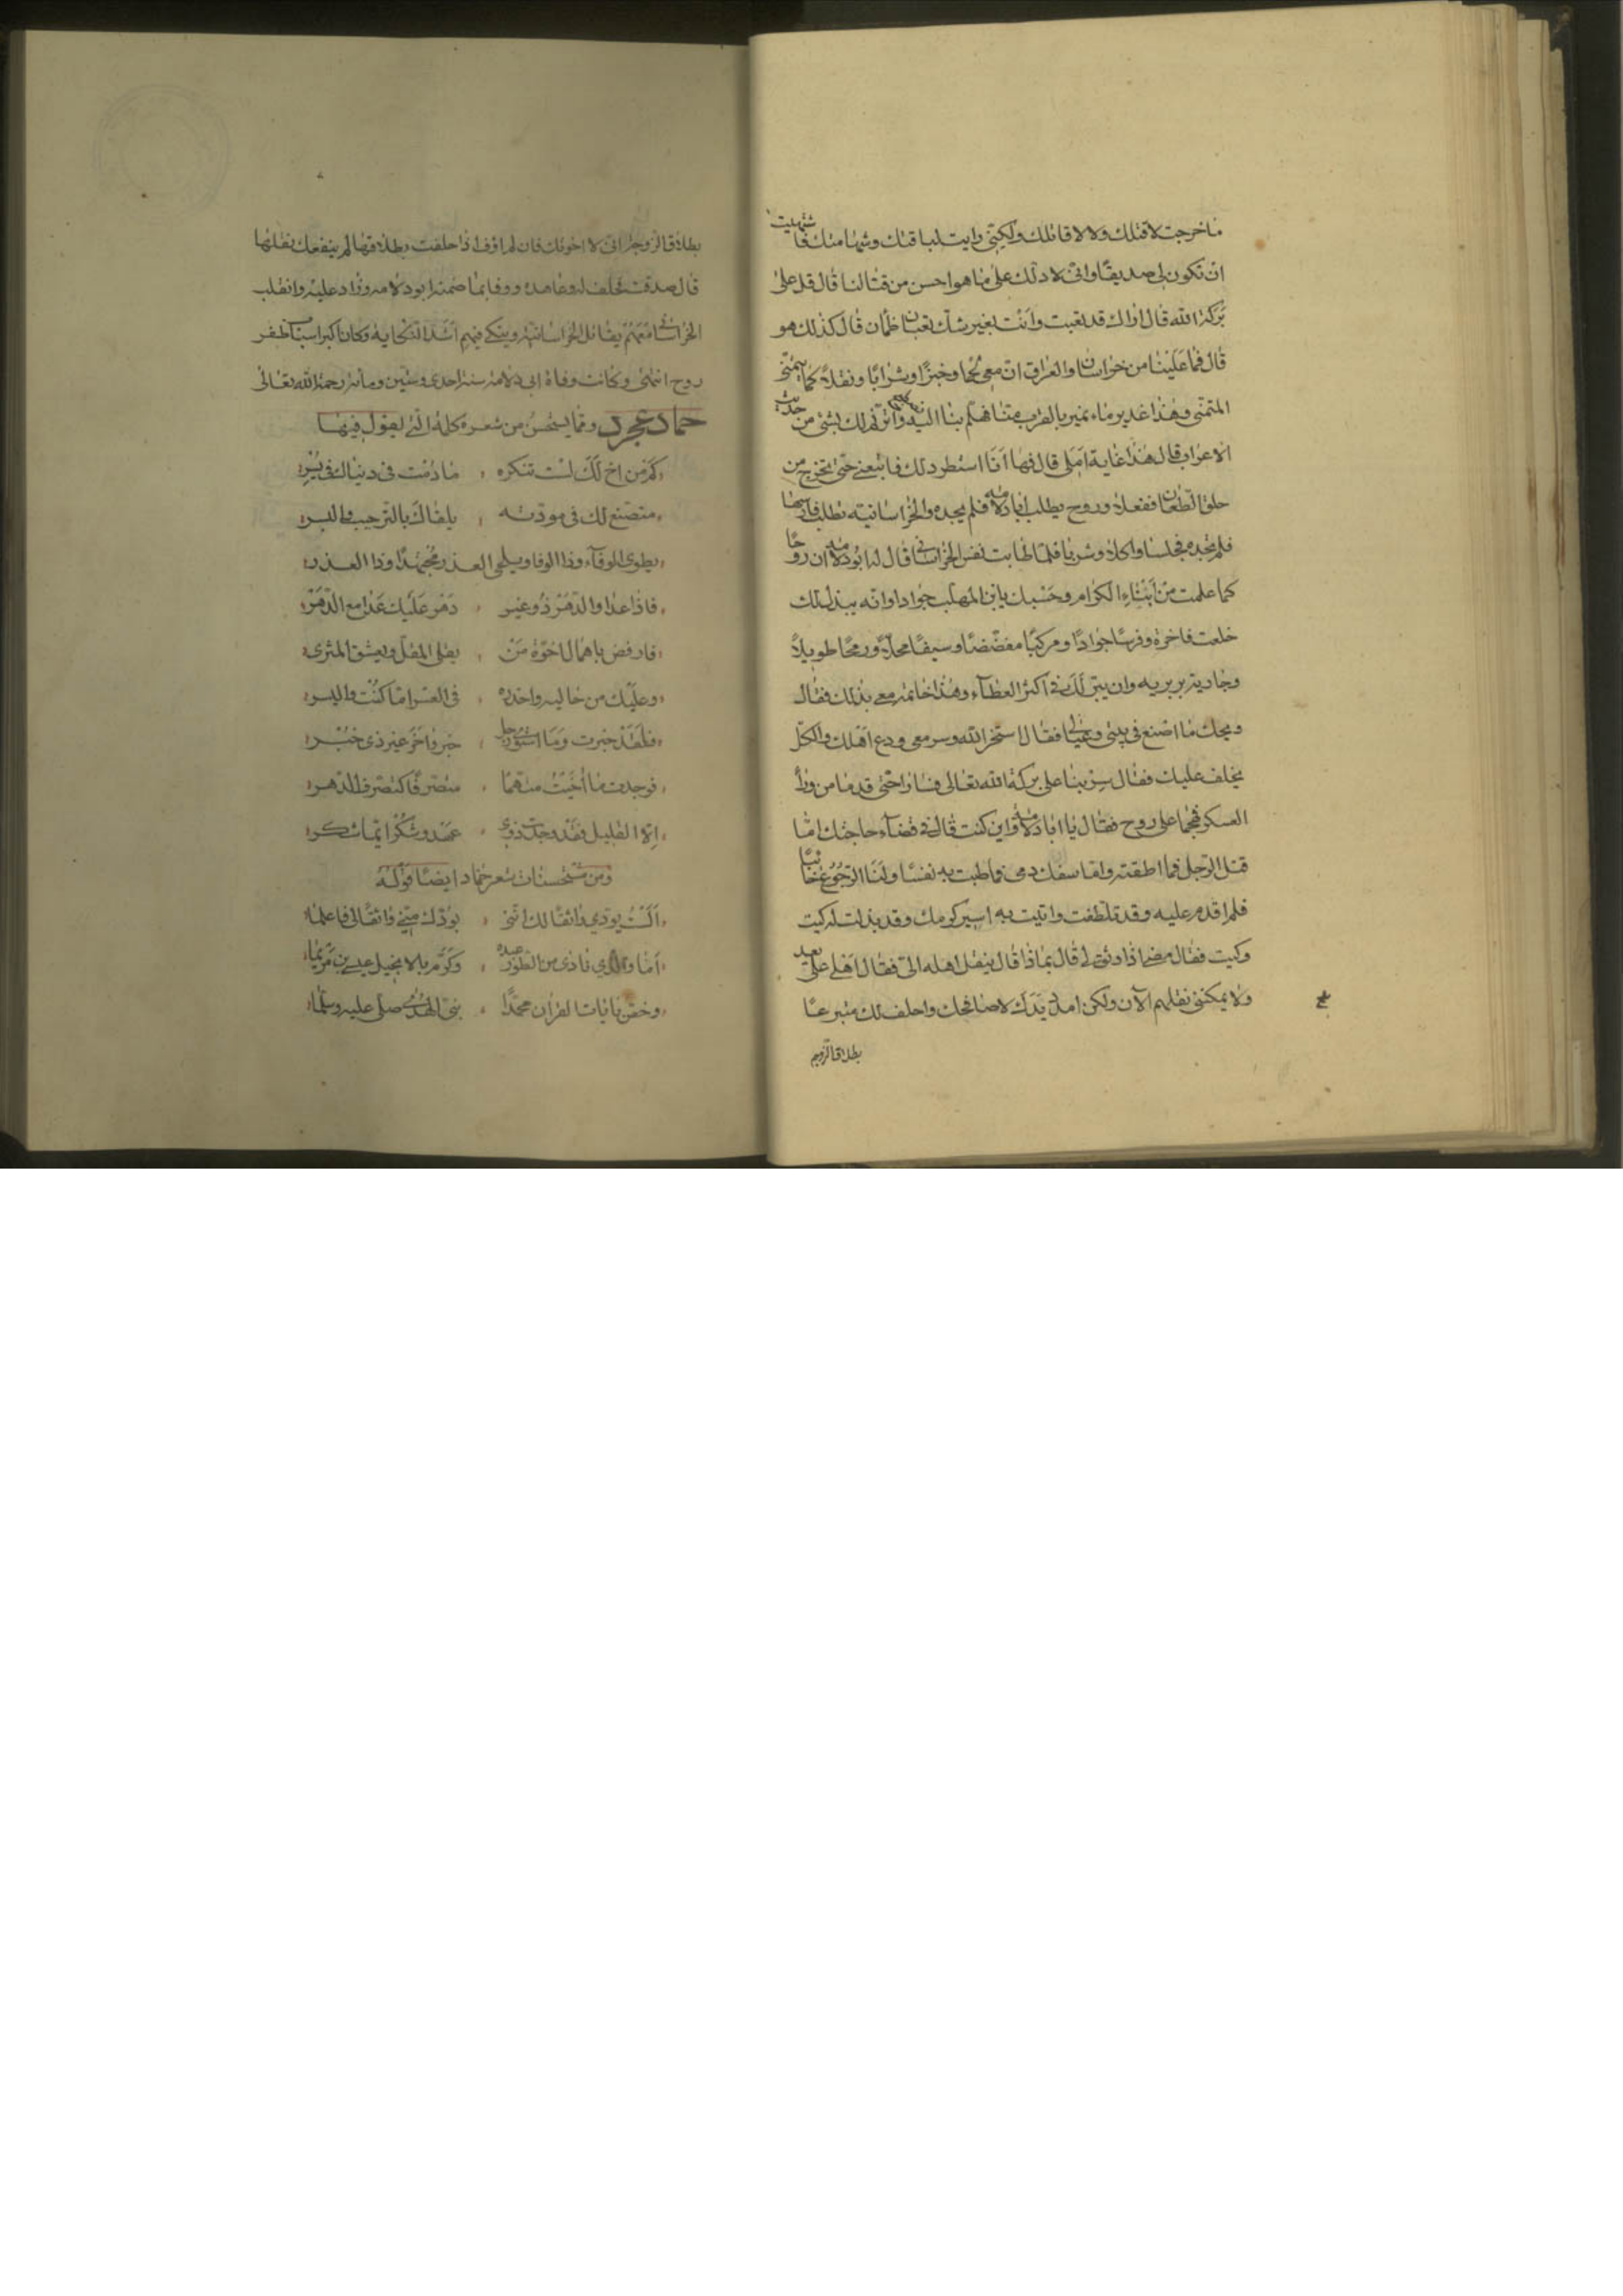 ما خرجت لاقتلك ولا لاقاتلك ولكنّى رايت لباقتك وشهامتك فاشتهيت
ان تكون لى صديقًا وانّى لادلّك على ما هو احسن من قتالنا قال قل على
بركة الله قال اراك قد تعبت وانت بغير شك تعبان ظمآن قال كذلك هو
قال فما علينا من خراسان والعراق انّ معى لحمًا وخبزًا وشرابًا ونقلاً كما يتمنّى
المتمنّى وهذا غدير ماء نمير بالقرب منّا فهلمّ بنا اليه واترنّم لك بشئ من حديث
الاعراب قال هذا غاية املى قال فها انا استطرد لك فاتبعنى حتى تخرج من
حلق الطعان ففعلا وروح يطلب ابا دلامه فلم يجده والخراسانيّه تطلب فارسها
فلم تجده فجلسا واكلا وشربا فلمّا طابت نفس الخراسانى قال له ابو دلامه ان روحًا
كما علمت من ابناء الكرام وحسبك بابن المهلب جوادا وانه يبذل لك
خلعت فاخرة وفرسًا جوادًا ومركبًا مفضّضًا وسيفًا محلّاً ورمحًا طويلاً
وجارية بربريه وان يثبت لك فى اكثر العطاء وهذا خاتمه معى بذلك فقال
ويحك ما اصنع فى بيتى وعيالى فقال استخر الله وسر معى ودع اهلك والكلّ
يخلف عليك فقال سر بنا على بركة الله تعالى فسارا حتّى قدما من ورآ
العسكر فهجما على روح فقال يا ابا دلامه واين كنت قال فى قضآء حاجتك امّا
قتل الرّجل فما اطقته وامّا سفك دمى فما طبت به نفسًا وامّا الرّجوع خائبًا
فلم اقدم عليه وقد تلطّفت واتيت به اسير كرمك وقد بذلت له كيت
وكيت فقال مضى اذا وثق لى قال بماذا قال بنقل اهله الىّ فقال اهلى على بعد
ولا يمكننى نقلهم الآن ولكن امدد يدك لاصافحك واحلف لك متبرعًا
بطلاق الزوجه
بطلاق الزوجه انى لا اخونك فان لم اوف اذا حلفت بطلاقها لم ينفعك نقلها
قال صدقت فحلف له وعاهده ووفا بما ضمنه ابو دلامه وزاد عليه وانقلب
الخراسانى معهم يقاتل الخراسانيه وينكى فيهم اشدّ النكايه وكان اكبر اسباب ظفر
روح انتهى وكانت وفاة ابى دلامه سنه احدى وستين ومائه رحمه الله تعالى
حماد عجرد وممّا يستحسن من شعره كلمة الّتى يقول فيها
كم من اخ لك لست تنكره ، ما دمت فى دنياك فى يسر
متصنع لك فى مودته ، يلقاك بالترحيب والبشر
يطوى الوفآء وذا الوفا ويلحى الغدر مجتهدًا وذا الغدر
فاذا عدا والدّهر ذو غير ، دهر عليك عدا مع الدّهر
فارفض باهمال اخوّة من ، يقلى المقلّ ويعشق المثرى
وعليك من حاليه واحدة ، فى العسر امّا كنت واليسر
فلقد خبرت
فوجدت ما أخيت منهما ، متصرّفًا كتصرف الدّهر
الّا القليل فقد وجدت ذوى ، عهد وشكر انّما شكر
ومن مستحسنات شعر حماد ايضًا قوله
الست بودّي واثقًا لك اننى ، بودّك منّى واثقًا لى فاعلما
اما والذي نادى من الطّور عبده ، وكرّم بالانجيل عيسى بن مريما
وخصّ بآيات القرآن محمّدًا ، نبىّ الهدى صلى عليه وسلّما